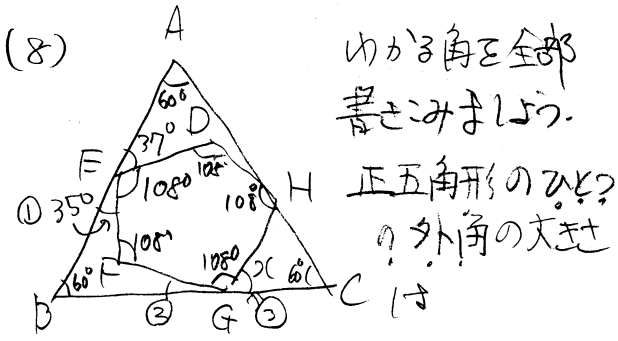 (8)
A
60°
37°
D
E
108°
108°
①35°
108°
H
108°
108°
x
60°
60°
F
B
②
G
③
C
わかる角を全部
書きこみましょう.
正五角形のひとつ
の外角の大きさ
は